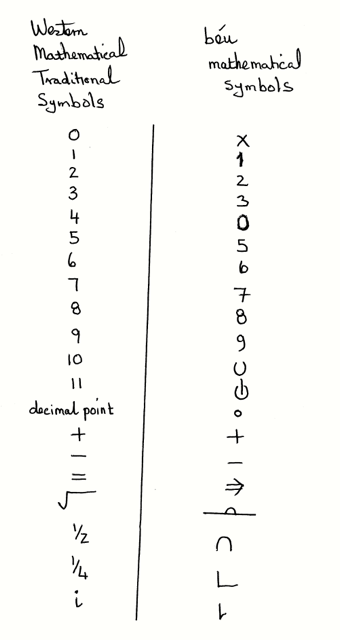 Western béu
Mathematical mathematical
Traditional symbols
Symbols
0 X
1 1
2 2
3 3
4 0
5 5
6 6
7 7
8 8
9 9
10 ∪
11 ⏻
decimal point ∘
+ +
− −
= ⇒
√
1/2 ∩
1/4 L
i